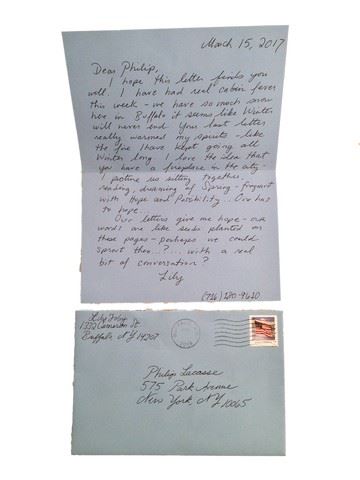 March 15, 2017
Dear Philip,
I hope this letter finds you
well. I have had real cabin fever
this week - we have so much snow
here in Buffalo it seems like Winter
will never end. Your last letter
really warmed my spirits - like
the fire I have kept going all
Winter long. I love the idea that
you have a fireplace in the city.
I picture us sitting together,
reading, dreaming of Spring - fragrant
with Hope and Possibility... One has
to hope...
Our letters give me hope - our
words are like seeds planted on
these pages - perhaps we could
sprout them...?... with a real
bit of conversation?
Lily
(716)
Lily
Cameron St
Buffalo, NY 14207
Philip Lacasse
575 Park Avenue
New York, NY 10065